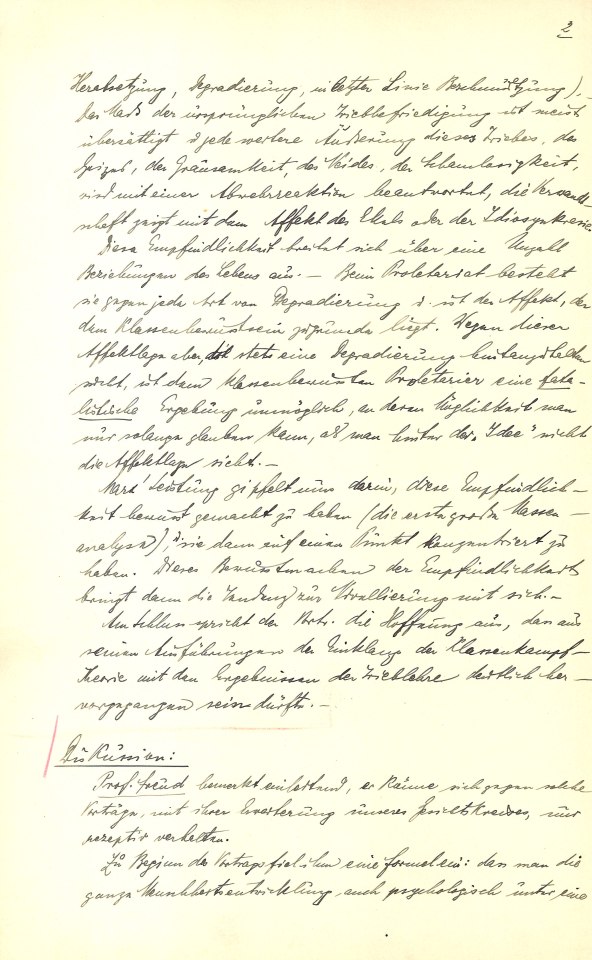 2
Herabsetzung, Degradierung, in letzter Linie Beschmutzung).
Das Maß der ursprünglichen Triebbefriedigung ist meist
übersättigt u jede weitere Äußerung dieses Triebes, des
Geizes, der Grausamkeit, des Neides, der Schamlosigkeit,
wird mit einer Abwehrreaktion beantwortet, die Verwandt-
schaft zeigt mit dem Affekt des Ekels oder der Idiosynkrasie
Diese Empfindlichkeit breitet sich über eine Unzahl
Beziehungen des Lebens aus. – Beim Proletariat besteht
sie gegen jede Art von Degradierung u. ist der Affekt, der
dem Klassenbewusstsein zugrunde liegt. Wegen dieser
Affektlage aber, stets eine Degradierung hintangehalten
ist dem klassenbewussten Proletarier eine fata-
listische Ergebung unmöglich, an deren Möglichkeit man
nur solange glauben kann, als man hinter der „Idee" nicht
die Affektlage sieht. –
Marx' Leistung gipfelt nun darin, diese Empfindlich-
keit bewusst gemacht zu haben (die erste große Massen-
analyse), u sie dann auf einen Punkt konzentriert zu
haben. Dieses Bewusstmachen der Empfindlichkeit
bringt dann die Tendenz zur mit sich. –
Am Schluss spricht der Vortr. die Hoffnung aus, dass aus
seinen Ausführungen der Einklang der Klassenkampf-
Theorie mit den Ergebnissen der Trieblehre deutlich her-
vorgegangen sein dürfte. –
Diskussion:
Prof. Freud bemerkt einleitend, er könne sich gegen solche
Vorträge, mit ihrer Erweiterung unseres Gesichtskreises, nur
rezeptiv verhalten.
Zu Beginn des Vortrags fiel ihm eine Formel ein: dass man die
ganze Menschheitsentwicklung auch psychologisch unter eine